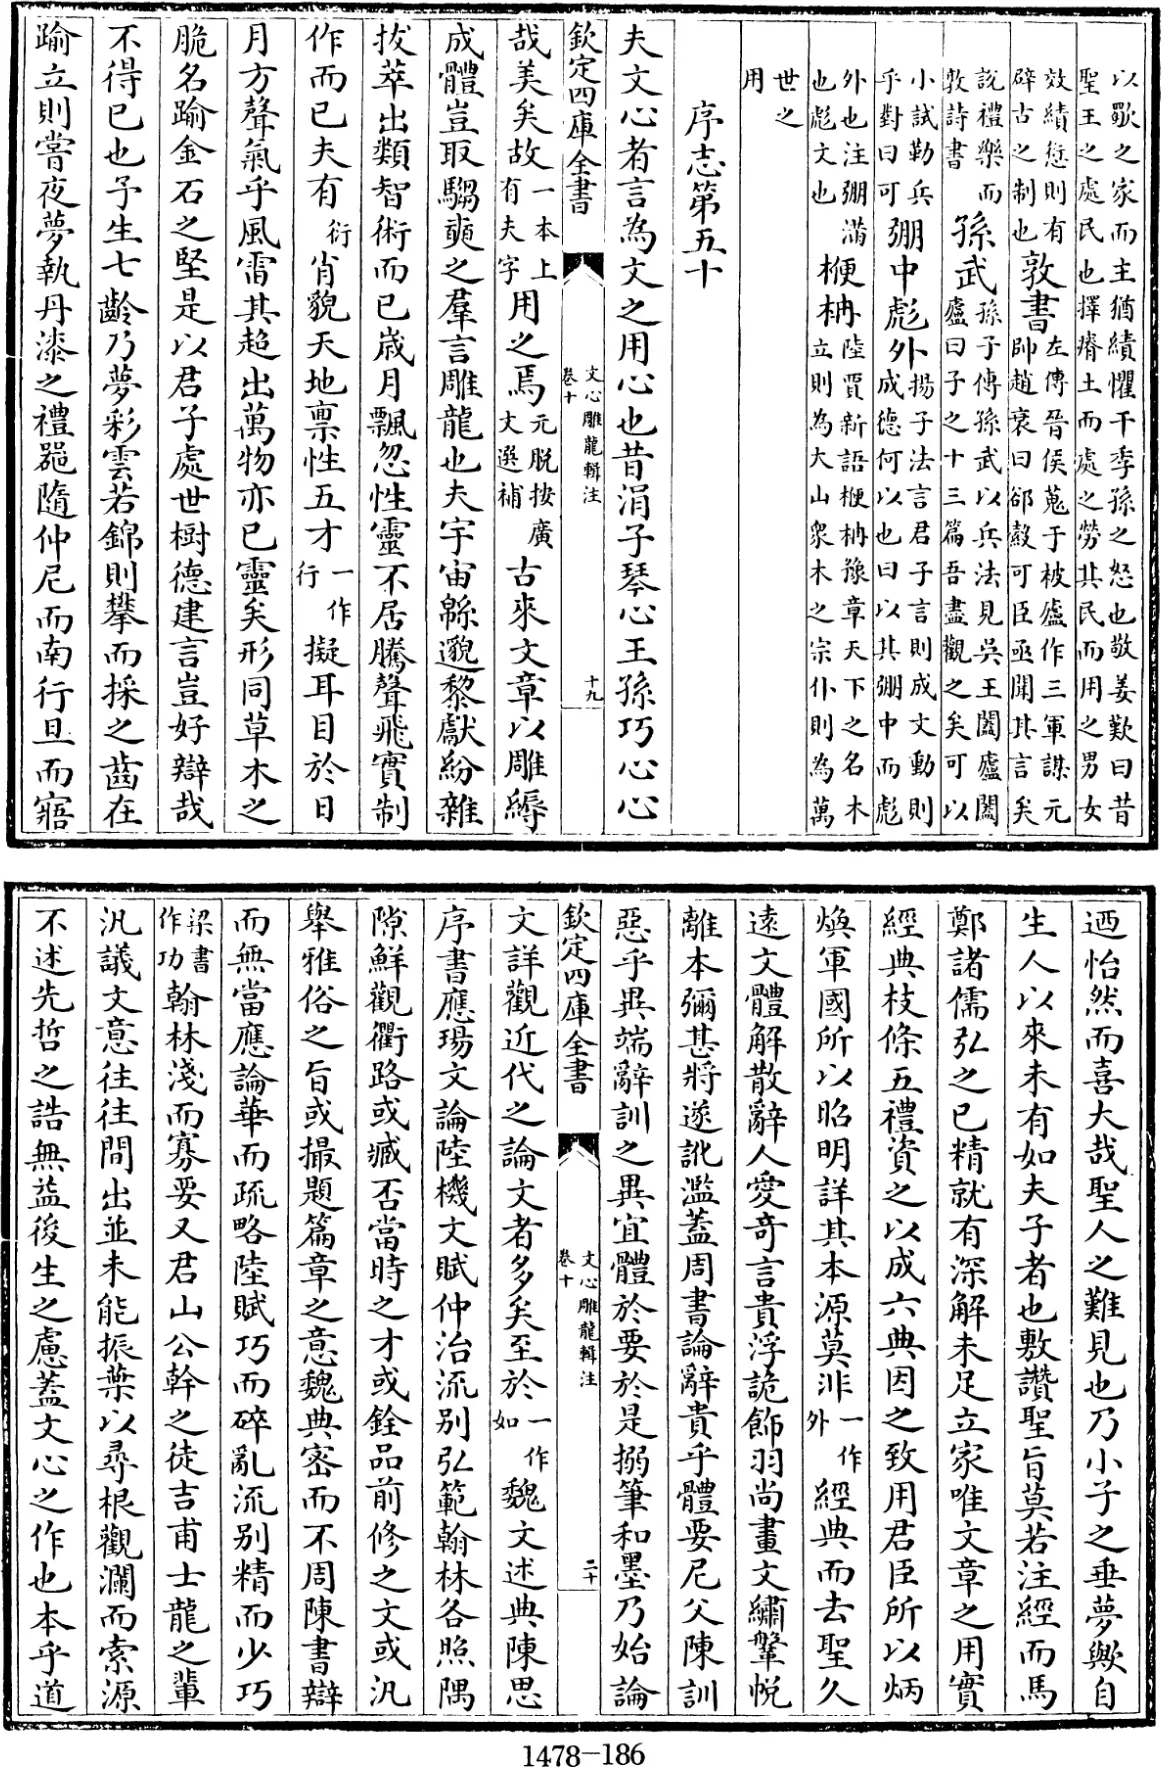 以歜之家而主猶績懼干季孫之怒也敬姜歎曰昔
聖王之處民也擇瘠土而處之勞其民而用之男女
效績愆則有辟古之制也敦書左傳晉侯蒐于被廬作三軍謀元帥趙衰曰郤縠可臣亟聞其言矣
說禮樂而敦詩書孫武孫子傳孫武以兵法見吳王闔廬闔廬曰子之十三篇吾盡觀之矣可以
小試勒兵乎對曰可弸中彪外揚子法言君子言則成文動則成德何以也曰以其弸中而彪
外也注弸滿也彪文也楩枏陸賈新語楩枏豫章天下之名木立則為大山衆木之宗仆則為萬
世之用
序志第五十
夫文心者言為文之用心也昔涓子琴心王孫巧心心
欽定四庫全書 文心雕龍輯注卷十 十九
哉美矣故一本上有夫字用之焉元脫按廣文選補古來文章以雕縟
成體豈取騶奭之羣言雕龍也夫宇宙緜邈黎獻紛雜
拔萃出類智術而已歲月飄忽性靈不居騰聲飛實制
作而已夫有衍肖貌天地稟性五才一作行擬耳目於日
月方聲氣乎風雷其超出萬物亦已靈矣形同草木之
脆名踰金石之堅是以君子處世樹德建言豈好辯哉
不得已也予生七齡乃夢彩雲若錦則攀而採之齒在
踰立則嘗夜夢執丹漆之禮器隨仲尼而南行旦而寤
迺怡然而喜大哉聖人之難見也乃小子之垂夢歟自
生人以來未有如夫子者也敷讚聖旨莫若注經而馬
鄭諸儒弘之已精就有深解未足立家唯文章之用實
經典枝條五禮資之以成六典因之致用君臣所以炳
煥軍國所以昭明詳其本源莫非一作外經典而去聖久
遠文體解散辭人愛奇言貴浮詭飾羽尚畫文繡鞶帨
離本彌甚將遂訛濫蓋周書論辭貴乎體要尼父陳訓
惡乎異端辭訓之異宜體於要於是搦筆和墨乃始論
欽定四庫全書 文心雕龍輯注卷十 二十
文詳觀近代之論文者多矣至於一作如魏文述典陳思
序書應瑒文論陸機文賦仲治流別弘範翰林各照隅
隙鮮觀衢路或臧否當時之才或銓品前修之文或汎
舉雅俗之旨或撮題篇章之意魏典密而不周陳書辯
而無當應論華而疏略陸賦巧而碎亂流別精而少巧
梁書作功翰林淺而寡要又君山公幹之徒吉甫士龍之輩
汎議文意往往間出並未能振葉以尋根觀瀾而索源
不述先哲之誥無益後生之慮蓋文心之作也本乎道
1478-186